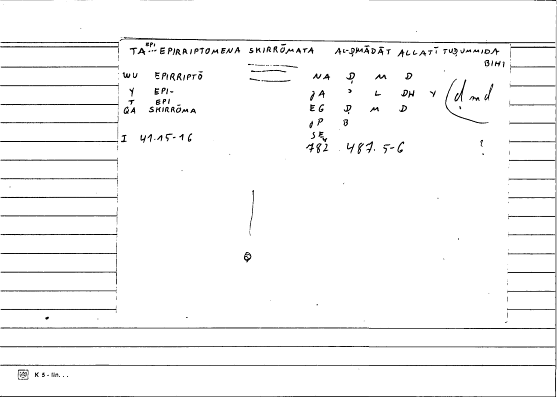 TA EPI... EPIRRIPTOMENA SKIRRŌMATA AL-ḌMĀDĀT ALLATĪ TUḌUMMIDA
BIHI
WU EPIRRIPTŌ NA Ḍ M D
Y EPI- A ʾ L DH Y (ḍmd
T EPI
QA SKIRRŌMA EG Ḍ M D
P B
SE
I 41.15-16 782 . 487. 5-6 ?
K 5 - lin. . .